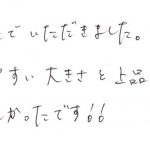 でいただきました。
すい大きさと上品
かったです!!